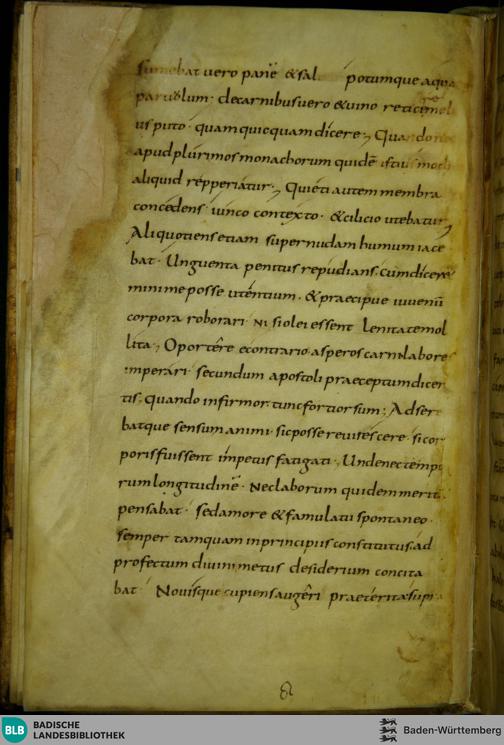 sumebat uero pane & sal potumque aqu
paruolum. de carnibus uero & uino reticere mel
ius puto quam quicquam dicere, Quando
apud plurimos monachorum quidē istius modi
aliquid repperiatur, Quieti autem membra
concedens iunco contexto. & cilicio utebatur,
Aliquotiens etiam super nudam humum iace
bat. Unguenta penitus repudians. cum dicere
minime posse utentium. & praecipue iuuenū
corpora roborari. nisi olei essent lenitate mol
lita, Oportere e contrario asperos carni labore
imperari secundum apostoli praeceptum dicen
tis. quando infirmor. tunc fortior sum; Adser
batque sensum animi. sic posse reuirescere. si cor
poris fuissent impetus fatigati. Unde nec temp
rum longitudinē. nec laborum quidem merit
pensabat. sed amore & famulatu spontaneo.
semper tamquam in principiis constitutus ad
profectum diuini metus desiderium concita
bat. Nouisque cupiens augeri praeterita
8
BLB
BADISCHE
LANDESBIBLIOTHEK
Baden-Württemberg